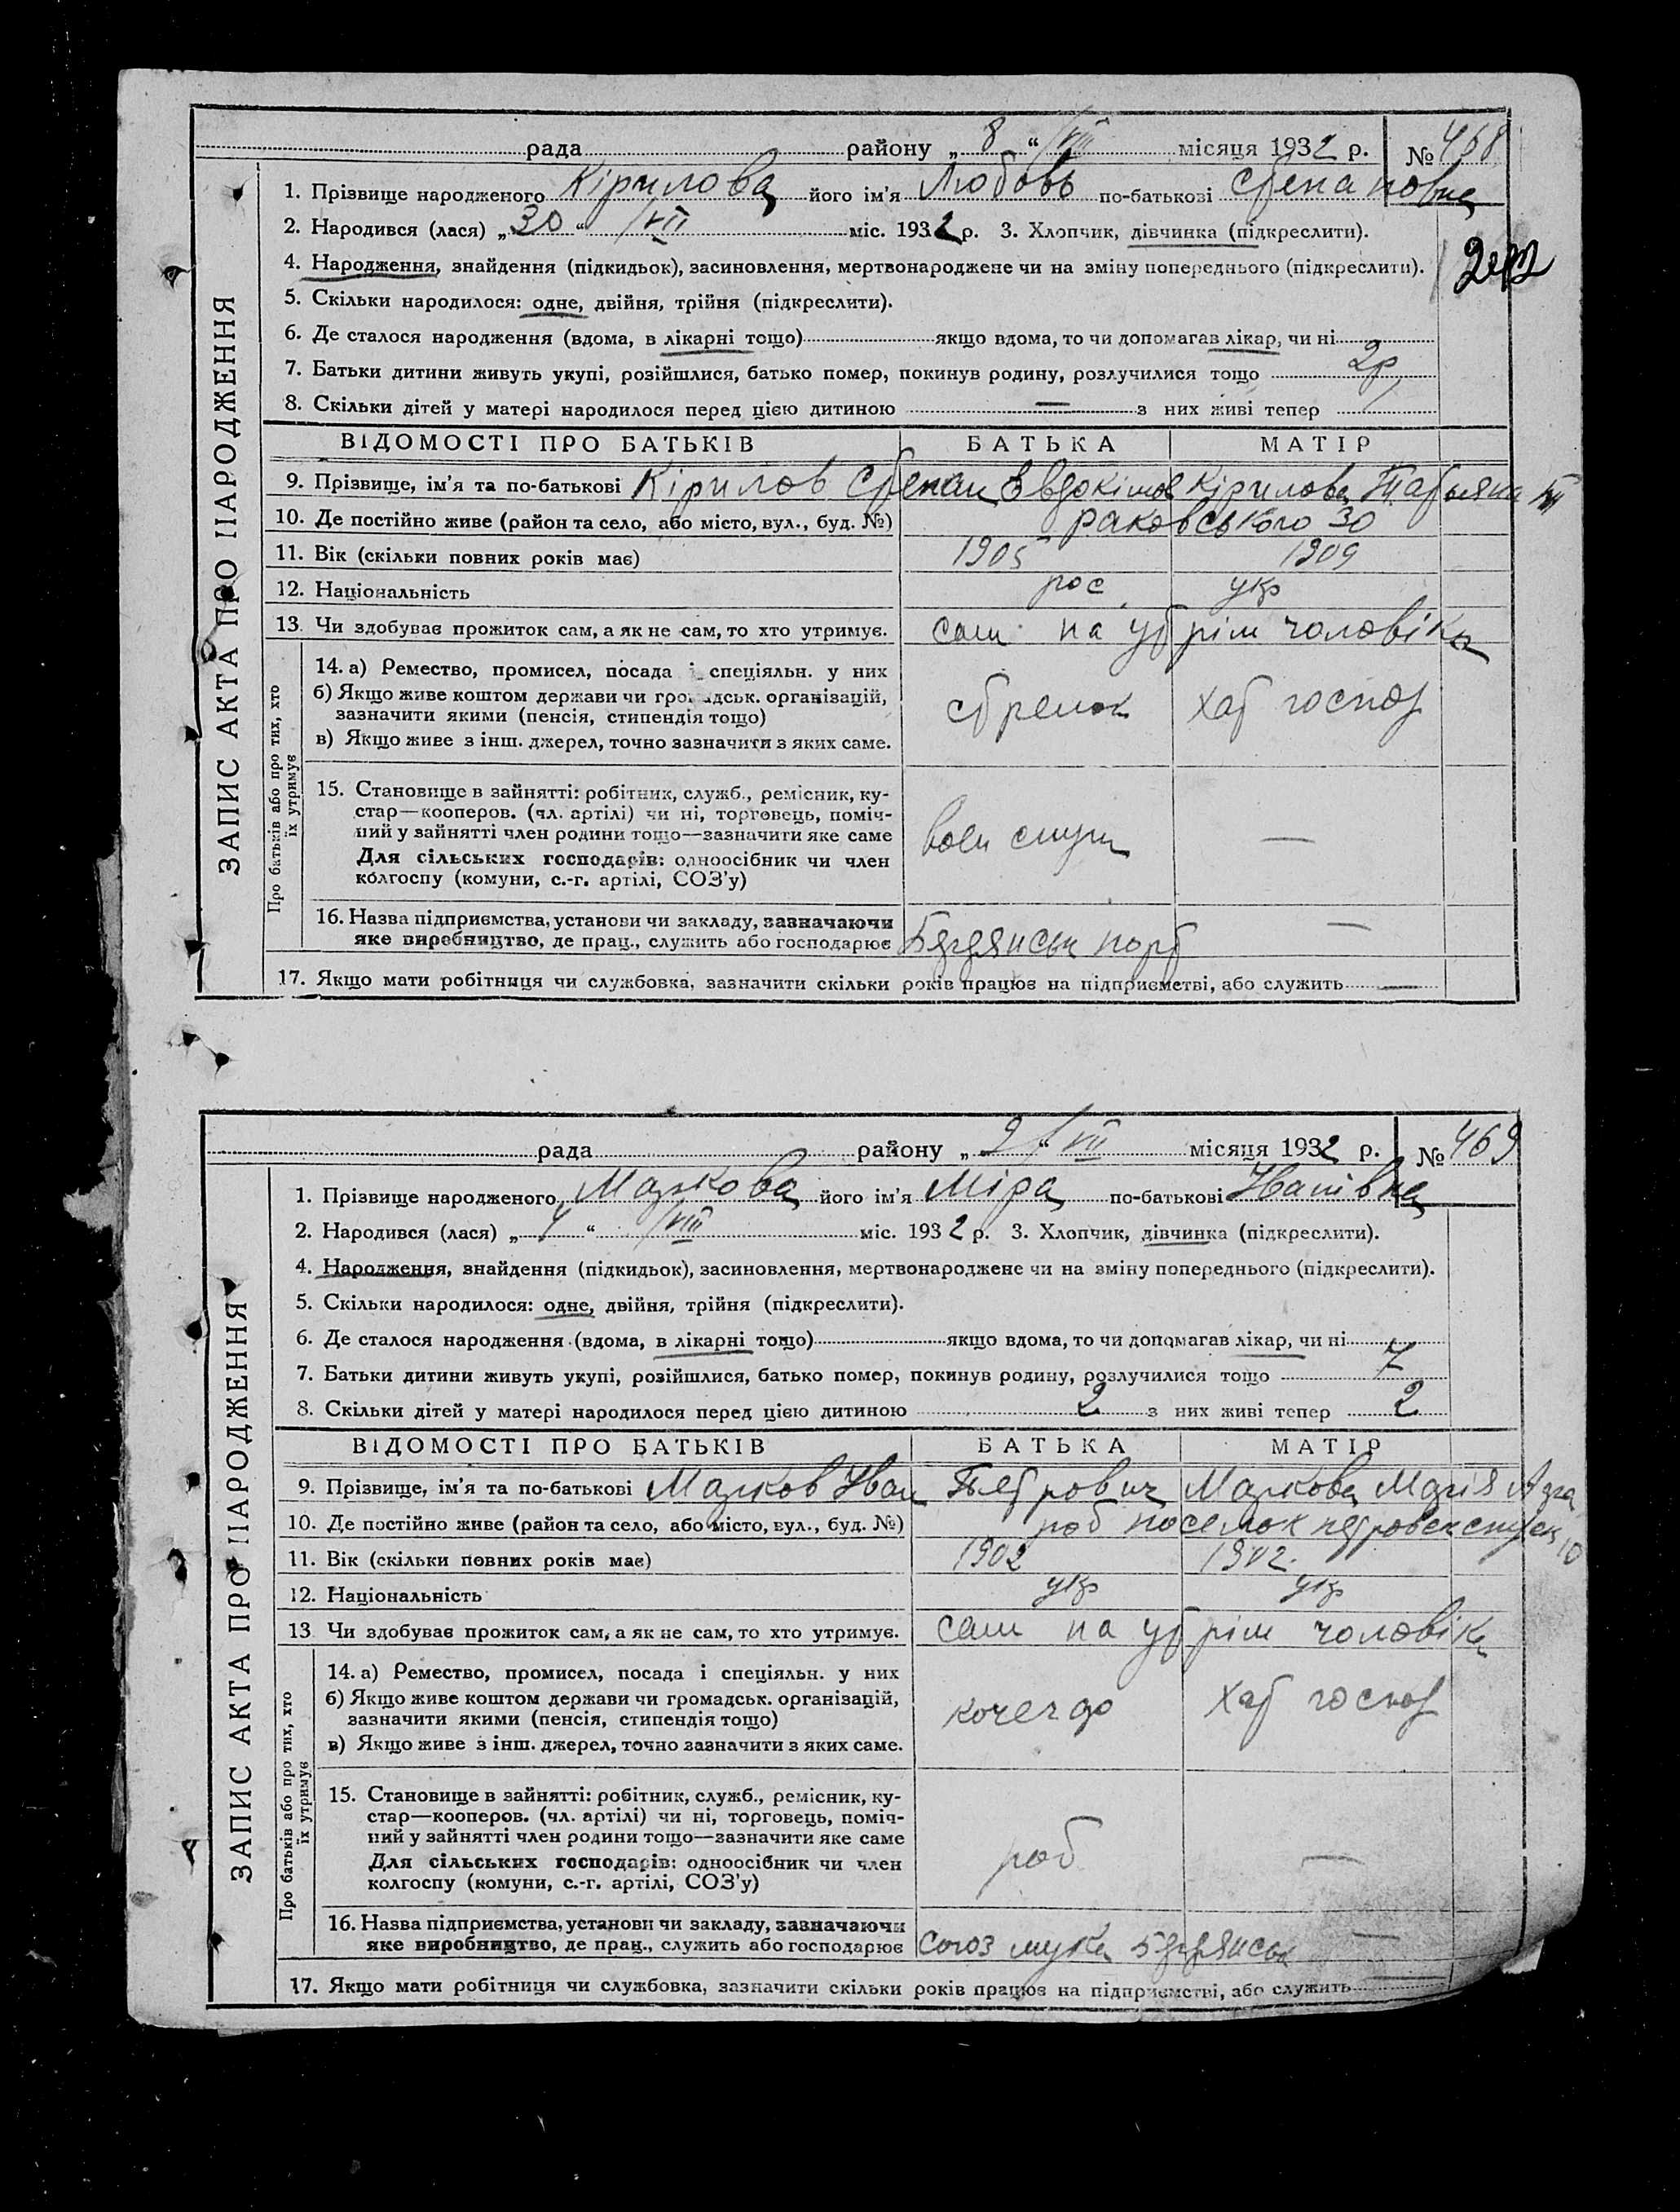 рада района „ 8 “ /VIII місяця 1932 р. № 468
1. Прізвище народженого Кірилова його ім'я Любовь по-батькові Степановна
2. Народився (лася) „ 30 “ /VII міс. 1932 р. 3. Хлопчик, дівчинка (підкреслити).
4. Народження, знайдення (підкидьок), засиновлення, мертвонароджене чи на зміну попереднього (підкреслити).
5. Скільки народилося: одне, двійня, трійня (підкреслити).
6. Де сталося народження (вдома, в лікарні тощо) якщо вдома, то чи допомагав лікар, чи ні
7. Батьки дитини живуть укупі, розійшлися, батько помер, покинув родину, розлучилися тощо 2р
8. Скільки дітей у матері народилося перед цією дитиною — з них живі тепер
ВІДОМОСТІ ПРО БАТЬКІВ БАТЬКА МАТІР
9. Прізвище, ім'я та по-батькові Кірилов Степан Евдокімов Кірилова Татьяна
10. Де постійно живе (район та село, або місто, вул., буд. №) Раковського 30
11. Вік (скільки повних років має) 1905 1909
12. Національність рос укр
13. Чи здобуває прожиток сам, а як не сам, то хто утримує. сам на утрім чоловіка
14. а) Ремество, промисел, посада і спеціяльн. у них
б) Якщо живе коштом держави чи громадськ. організацій,
зазначити якими (пенсія, стипендія тощо)
в) Якщо живе з інш. джерел, точно зазначити з яких саме.
стрелок хат господ
15. Становище в зайнятті: робітник, служб., ремісник, ку-
стар—кооперов. (чл. артілі) чи ні, торговець, поміч-
ний у зайнятті член родини тощо—зазначити яке саме
Для сільських господарів: одноосібник чи член
колгоспу (комуни, с.-г. артілі, СОЗ'у)
воен служ —
16. Назва підприємства, установи чи закладу, зазначаючи
яке виробництво, де прац., служить або господарює Бердянськ порт —
17. Якщо мати робітниця чи службовка, зазначити скільки років працює на підприємстві, або служить —
ЗАПИС АКТА ПРО НАРОДЖЕННЯ
Про батьків або про тих, хто
їх утримує
рада району „ 9 “ /VII місяця 1932 р. № 469
1. Прізвище народженого Маркова його ім'я Міра по-батькові Иванівна
2. Народився (лася) „ 4 “ /VIII міс. 1932 р. 3. Хлопчик, дівчинка (підкреслити).
4. Народження, знайдення (підкидьок), засиновлення, мертвонароджене чи на зміну попереднього (підкреслити).
5. Скільки народилося: одне, двійня, трійня (підкреслити).
6. Де сталося народження (вдома, в лікарні тощо) якщо вдома, то чи допомагав лікар, чи ні
7. Батьки дитини живуть укупі, розійшлися, батько помер, покинув родину, розлучилися тощо 7
8. Скільки дітей у матері народилося перед цією дитиною 2 з них живі тепер 2
ВІДОМОСТІ ПРО БАТЬКІВ БАТЬКА МАТІР
9. Прізвище, ім'я та по-батькові Марков Иван Петрович Маркова Марія
10. Де постійно живе (район та село, або місто, вул., буд. №) роб поселок 10
11. Вік (скільки повних років має) 1902 1902.
12. Національність укр укр
13. Чи здобуває прожиток сам, а як не сам, то хто утримує. сам на утрім чоловіка
14. а) Ремество, промисел, посада і спеціяльн. у них
б) Якщо живе коштом держави чи громадськ. організацій,
зазначити якими (пенсія, стипендія тощо)
в) Якщо живе з інш. джерел, точно зазначити з яких саме.
кочегар хат господ
15. Становище в зайнятті: робітник, служб., ремісник, ку-
стар—кооперов. (чл. артілі) чи ні, торговець, поміч-
ний у зайнятті член родини тощо—зазначити яке саме
Для сільських господарів: одноосібник чи член
колгоспу (комуни, с.-г. артілі, СОЗ'у)
роб —
16. Назва підприємства, установи чи закладу, зазначаючи
яке виробництво, де прац., служить або господарює союз мука Бердянськ —
17. Якщо мати робітниця чи службовка, зазначити скільки років працює на підприємстві, або служить —
ЗАПИС АКТА ПРО НАРОДЖЕННЯ
Про батьків або про тих, хто
їх утримує